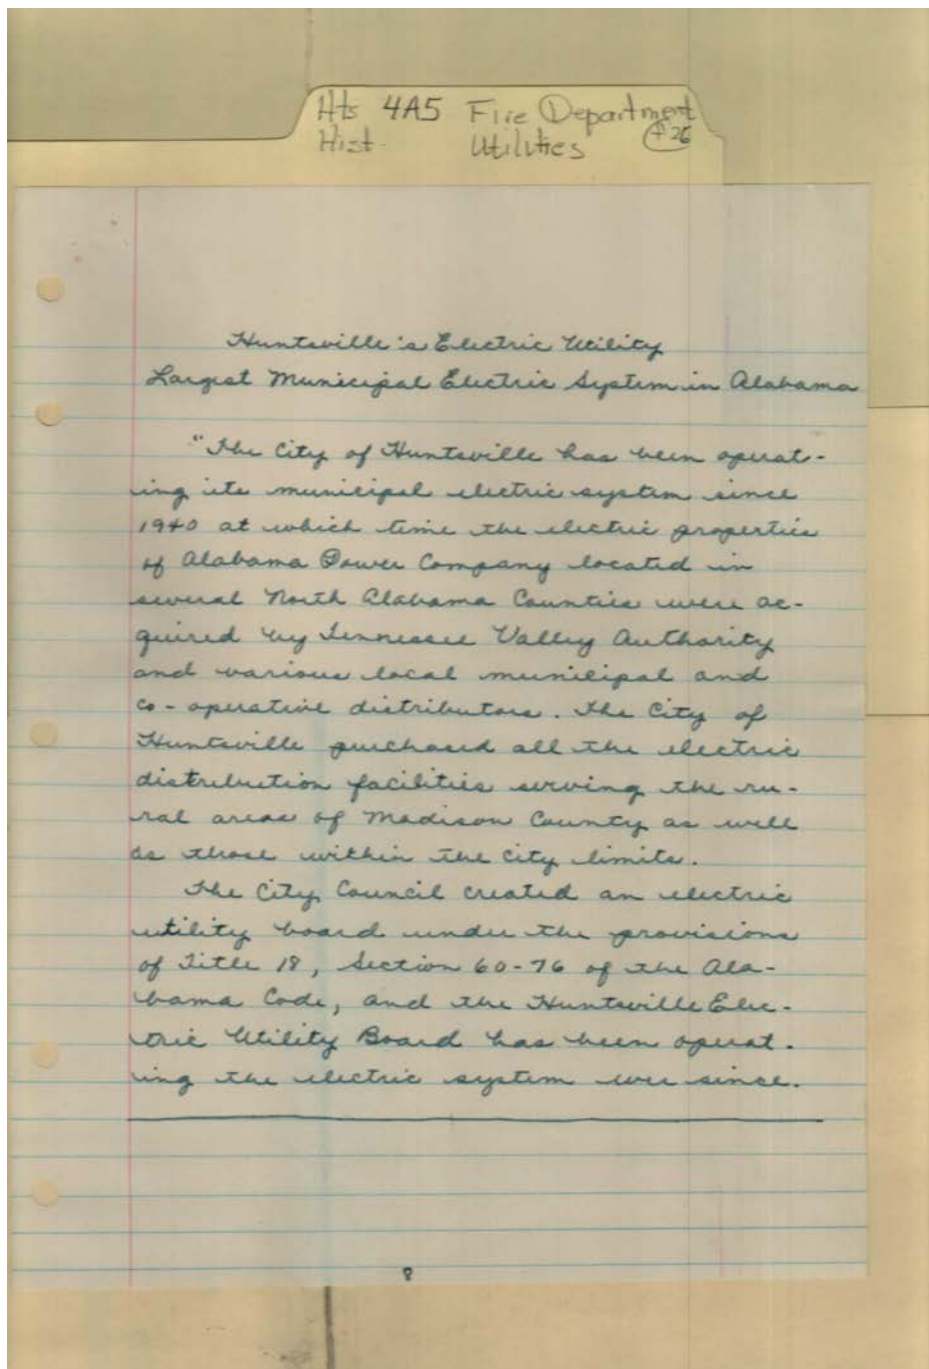 Hts 4A5 Fire Department
Hist. Utilities +26
Huntsville's Electric Utility
Largest Municipal Electric System in Alabama
"The City of Huntsville has been operat-
ing its municipal electric system since
1940 at which time the electric properties
of Alabama Power Company located in
several North Alabama Counties were ac-
quired by Tennessee Valley Authority
and various local municipal and
co-operative distributors. The City of
Huntsville purchased all the electric
distribution facilities serving the ru-
ral areas of Madison County as well
as those within the city limits.
The City Council created an electric
utility board under the provisions
of Title 18, Section 60-76 of the Ala-
bama Code, and the Huntsville Elec-
tric Utility Board has been operat-
ing the electric system ever since.
8